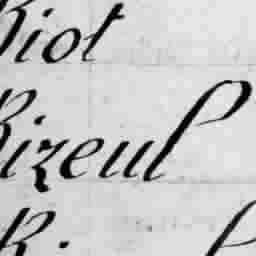 Riot
Rizeul